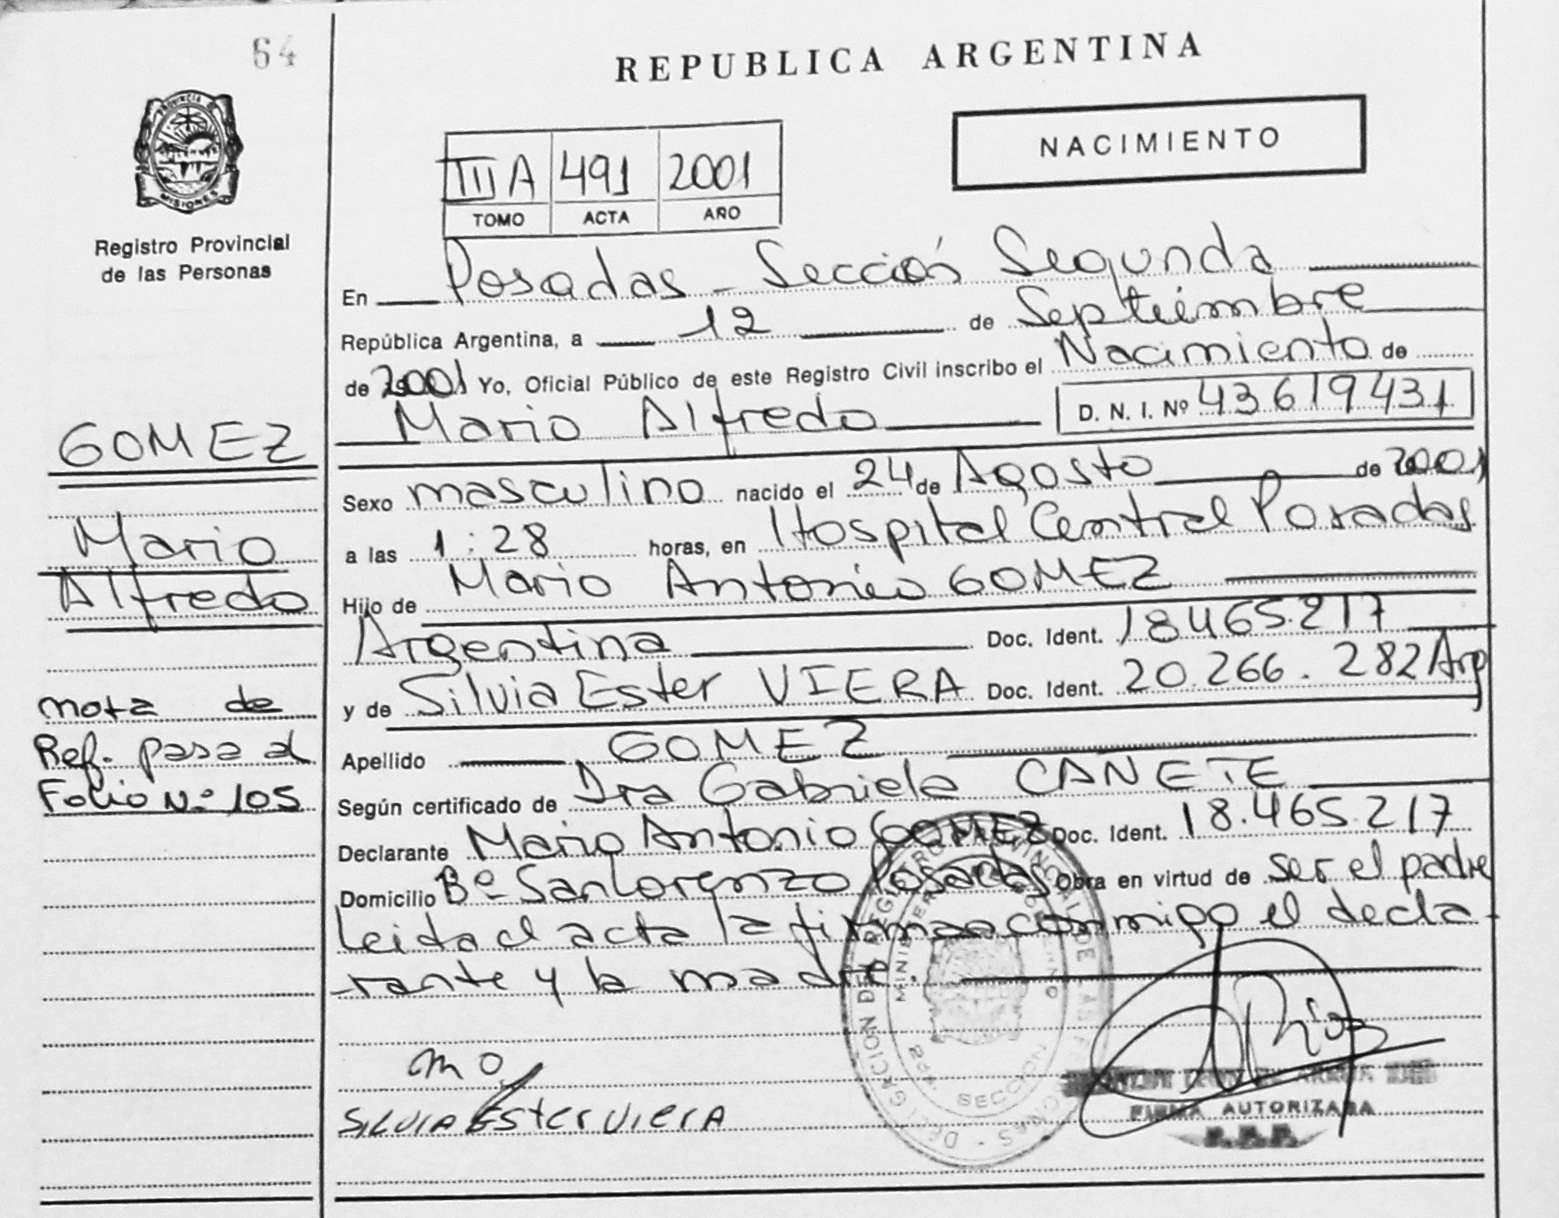 64
REPUBLICA ARGENTINA
PROVINCIA D
MISIONES
Registro Provincial
de las Personas
NACIMIENTO
III A 491 2001
TOMO ACTA AÑO
En Posadas - Sección Segunda
República Argentina, a 12 de Septiembre
de 2001 Yo, Oficial Público de este Registro Civil inscribo el Nacimiento de
Mario Alfredo D. N. I. Nº 43619431
GOMEZ
Mario
Alfredo
nota de
Ref. pasa al
Folio Nº 105
Sexo masculino nacido el 24 de Agosto de 2001
a las 1:28 horas, en Hospital Central Posadas
Hijo de Mario Antonio GOMEZ
Argentina Doc. Ident. 18465217
y de Silvia Ester VIERA Doc. Ident. 20.266.282 Arg
Apellido GOMEZ
Según certificado de Dra Gabriela CANETE
Declarante Mario Antonio GOMEZ Doc. Ident. 18.465.217
Domicilio Bº San Lorenzo Posadas Obra en virtud de ser el padre
Leida el acta la firman conmigo el decla-
rante y la madre.
DELEGACION DEL REGISTRO PROVINCIAL DE LAS PERSONAS
SECCION
SILVIA ESTER VIERA
Ríos
FIRMA AUTORIZADA